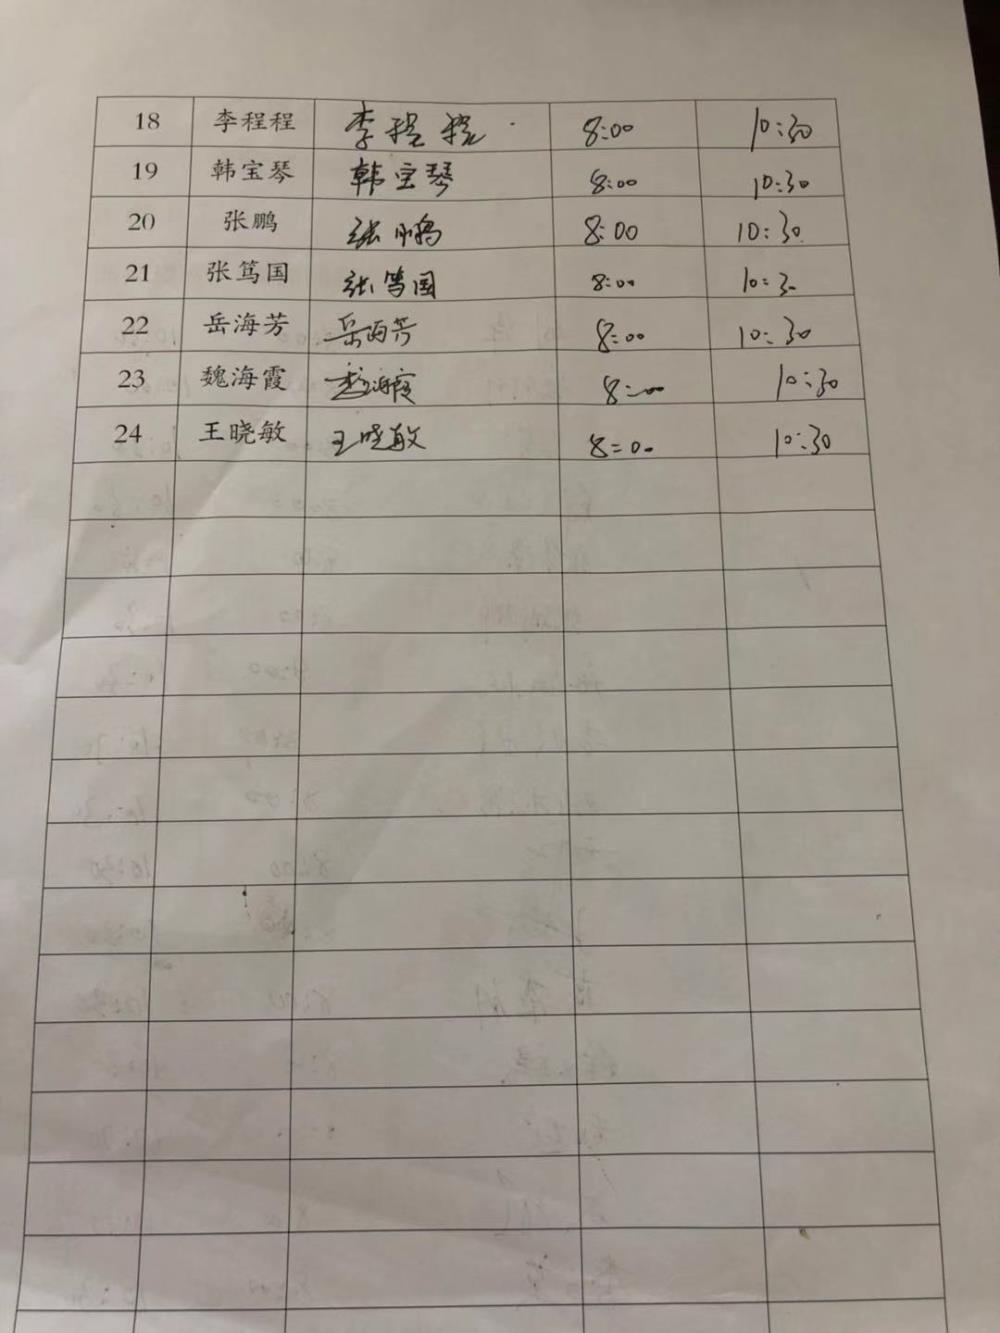 18 李程程 李程程 8:00 10:30
19 韩宝琴 韩宝琴 8:00 10:30
20 张鹏 张鹏 8:00 10:30
21 张笃国 张笃国 8:00 10:30
22 岳海芳 岳海芳 8:00 10:30
23 魏海霞 魏海霞 8:00 10:30
24 王晓敏 王晓敏 8:00 10:30